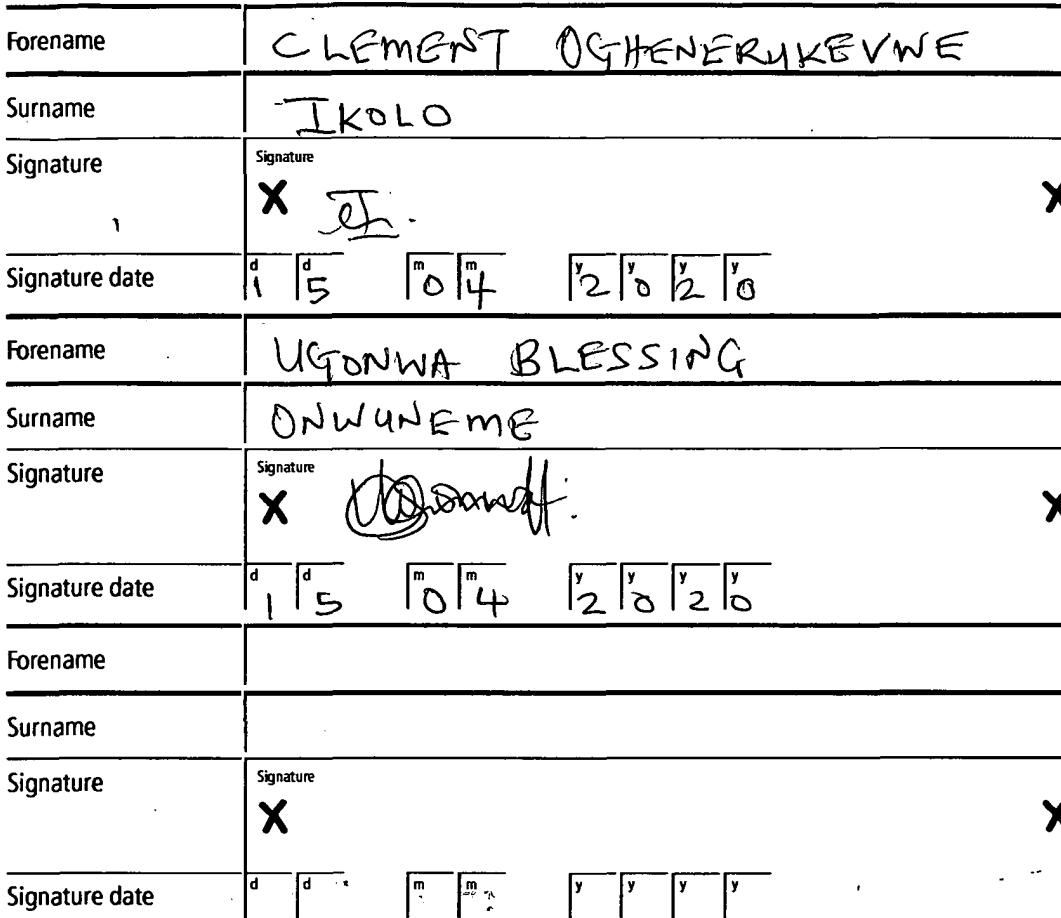 Forename CLEMENT OGHENERUKEVWE
Surname IKOLO
Signature Signature
X X
Signature date d 1 d 5 m 0 m 4 y 2 y 0 y 2 y 0
Forename UGONWA BLESSING
Surname ONWUNEME
Signature Signature
X X
Signature date d 1 d 5 m 0 m 4 y 2 y 0 y 2 y 0
Forename
Surname
Signature Signature
X X
Signature date d d m m y y y y